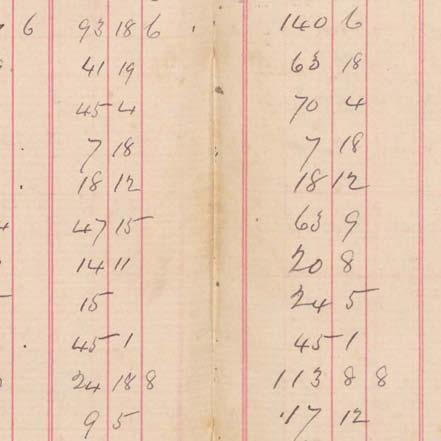 6 93 18 6 140 6
41 19 63 18
45 4 70 4
7 18 7 18
18 12 18 12
47 15 63 9
14 11 20 8
15 24 5
45 1 45 1
24 18 8 113 8 8
9 5 17 12